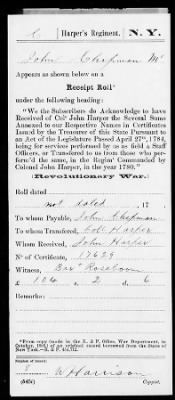 C Harper's Regiment, N. Y.
John Chapman Mc
Appears as shown below on a
Receipt Roll*
under the following heading:
"We the Subscribers do Acknowledge to have
Received of Colo John Harper the Several Sums
Annexed to our Respective Names in Certificates
Issued by the Treasurer of this State Pursuant to
an Act of the Legislature Passed April 27th, 1784,
being for services performed by us as field & Staff
Officers, or Transfered to us from those who per-
form'd the same, in the Regimt Commanded by
Colonel John Harper, in the year 1780."
(Revolutionary War.)
Roll dated
not dated, 17 .
To whom Payable, John Chapman
To whom Transfered, Coll Harper
Whom Received, John Harper
No of Certificate, 17629
Witness, Bar Roseboom
£ 126 . 2 d. 6
Remarks:
*From copy funds in the R. & P. Office, War Department, in
October, 1895, of an original record borrowed from the State of
New York.—R. & P.
Number of record:
8 W Harrison
Copyist.